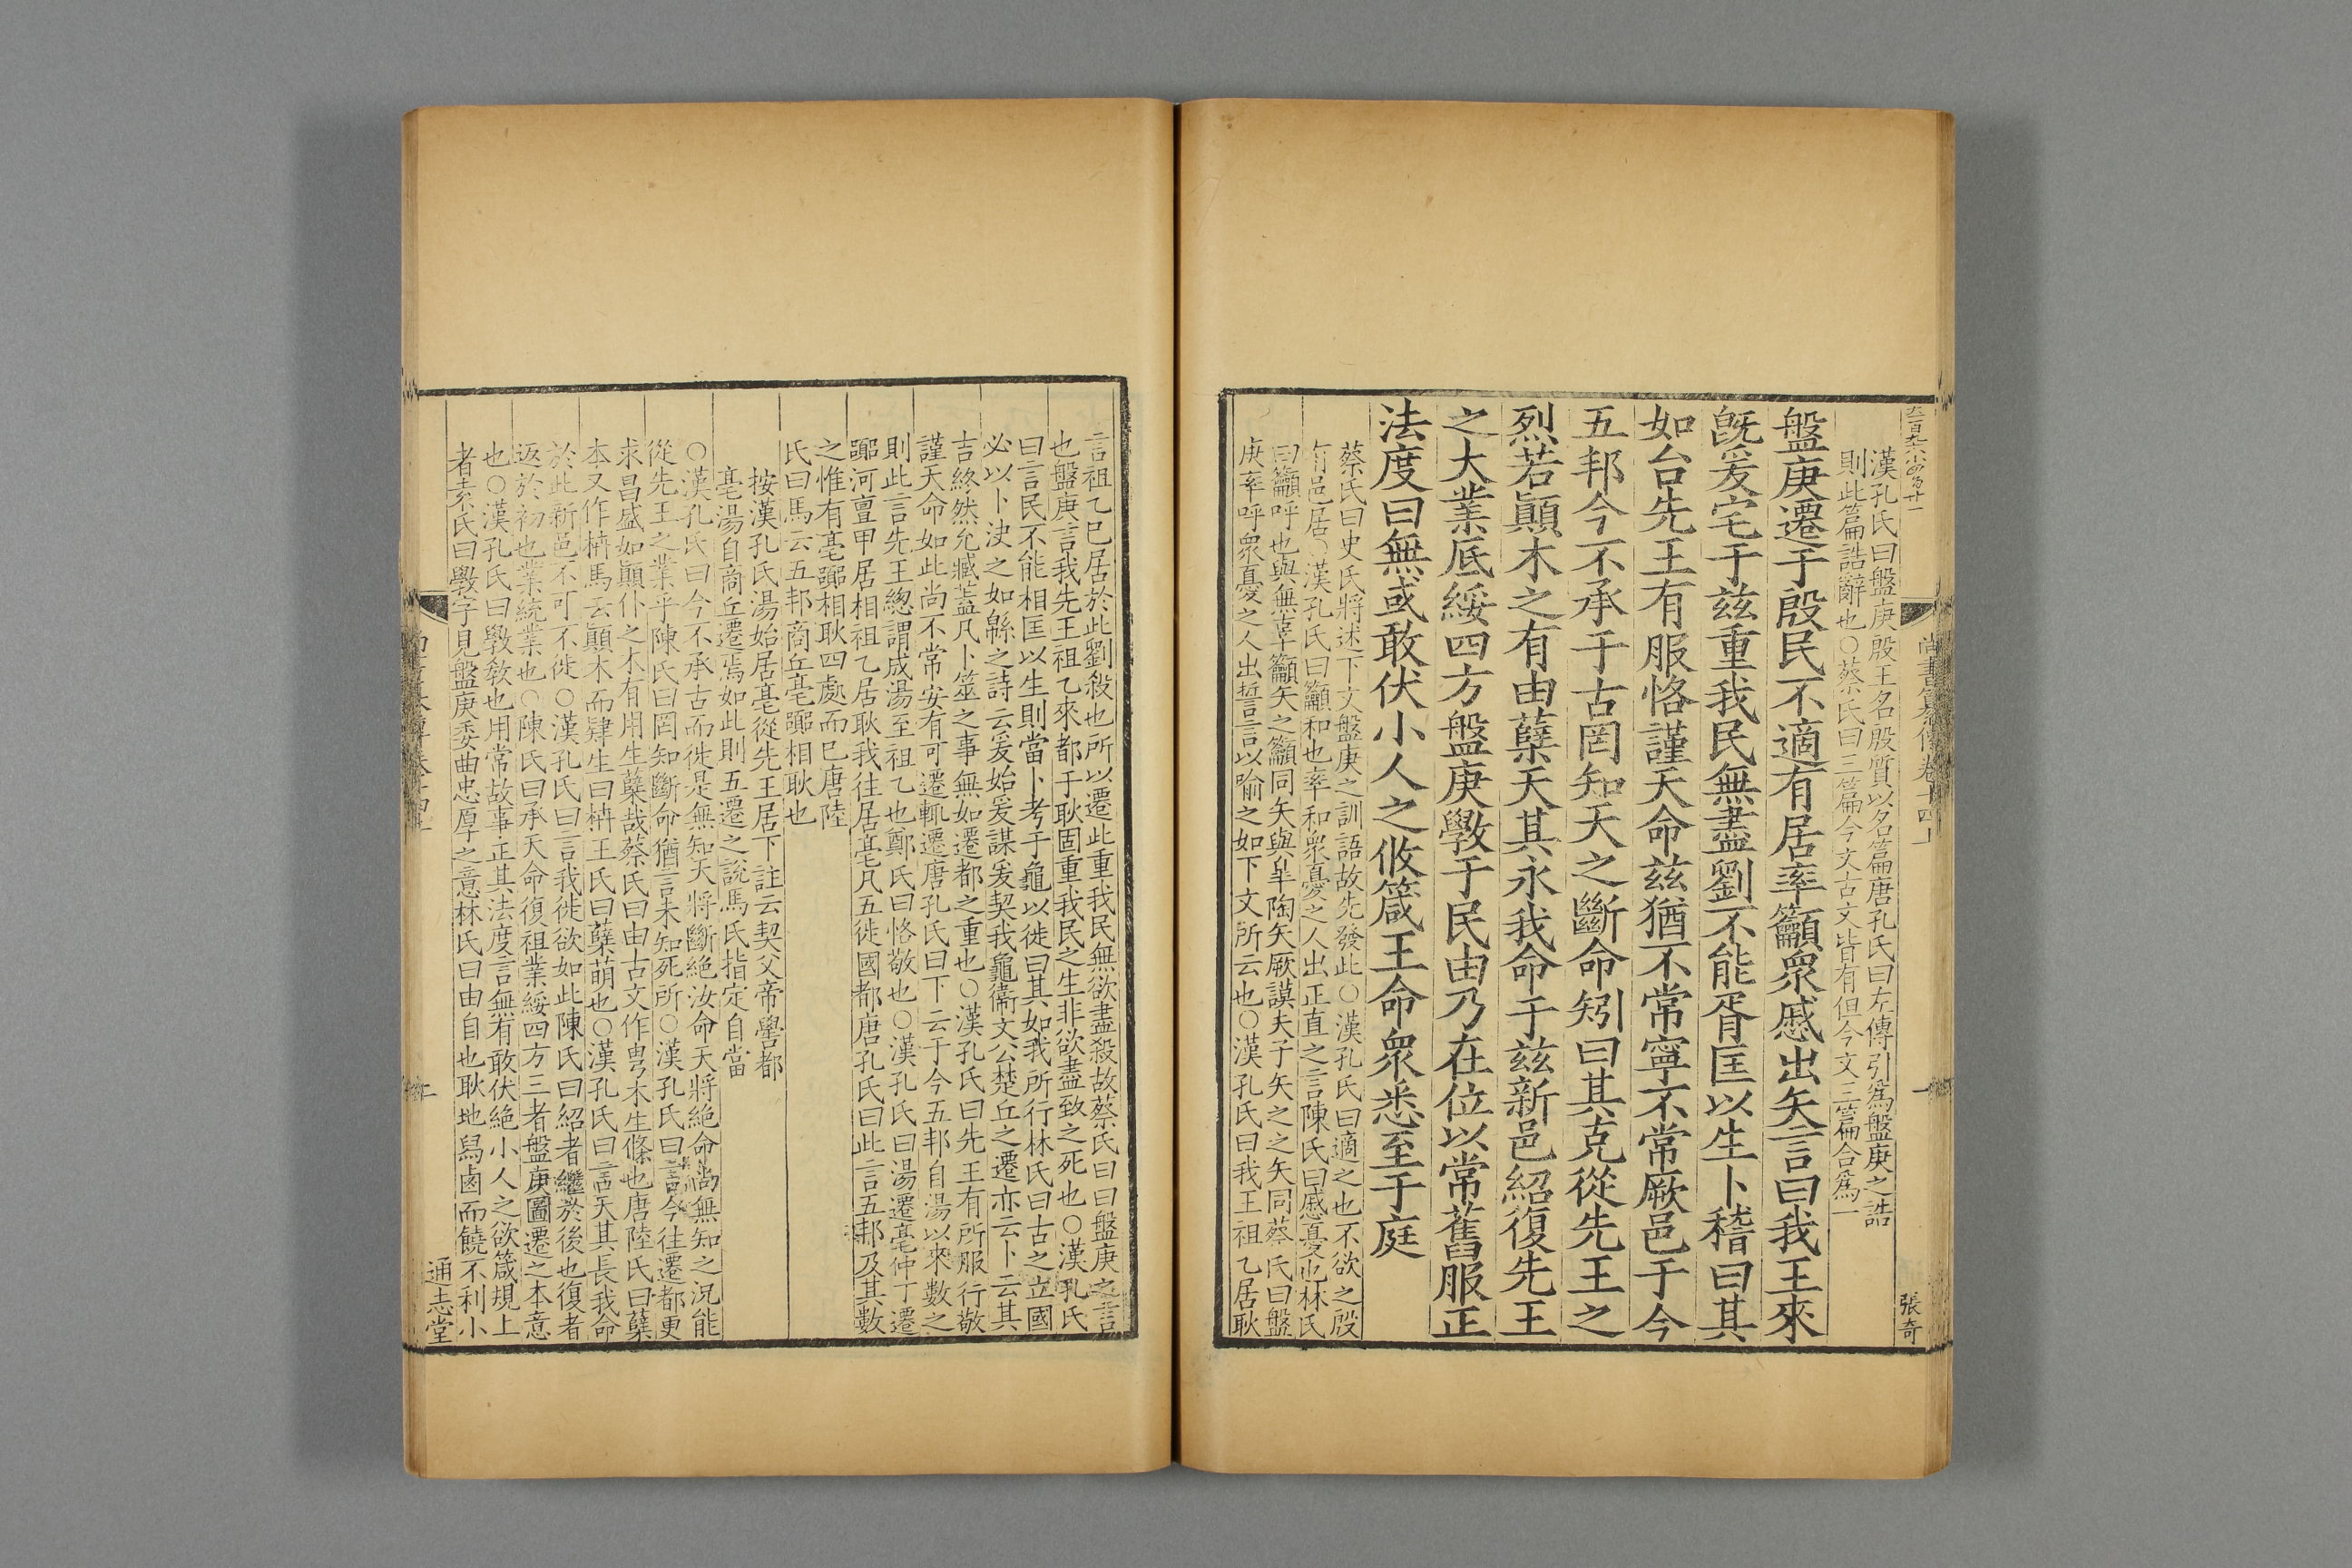 漢孔氏曰盤庚殷王名殷質以名篇唐孔氏曰左傳引爲盤庚之誥
則此篇誥辭也○蔡氏曰三篇今文古文皆有但今文三篇合爲一
盤庚遷于殷民不適有居率籲衆慼出矢言曰我王來
旣爰宅于茲重我民無盡劉不能胥匡以生卜稽曰其
如台先王有服恪謹天命茲猶不常寧不常厥邑于今
五邦今不承于古罔知天之斷命矧曰其克從先王之
烈若顚木之有由蘖天其永我命于茲新邑紹復先王
之大業厎綏四方盤庚斆于民由乃在位以常舊服正
法度曰無或敢伏小人之攸箴王命衆悉至于庭
蔡氏曰史氏將述下文盤庚之訓語故先發此○漢孔氏曰適之也不欲之殷
有邑居○漢孔氏曰籲和也率和衆憂之人出正直之言陳氏曰慼憂也林氏
曰籲呼也與無辜籲天之籲同矢與臯陶矢厥謨夫子矢之之矢同蔡氏曰盤
庚率呼衆憂之人出誓言以喻之如下文所云也○漢孔氏曰我王祖乙居耿
張奇
言祖乙已居於此劉殺也所以遷此重我民無欲盡殺故蔡氏曰曰盤庚之言
也盤庚言我先王祖乙來都于耿固重我民之生非欲盡致之死也○漢孔氏
曰言民不能相匡以生則當卜考于龜以徙曰其如我所行林氏曰古之立國
必以卜決之如緜之詩云爰始爰謀爰契我龜衞文公楚丘之遷亦云卜云其
吉終然允臧蓋凡卜筮之事無如遷都之重也○漢孔氏曰先王有所服行敬
謹天命如此尚不常安有可遷輒遷唐孔氏曰下云于今五邦自湯以來數之
則此言先王總謂成湯至祖乙也鄭氏曰恪敬也○漢孔氏曰湯遷亳仲丁遷
嚻河亶甲居相祖乙居耿我往居亳凡五徙國都唐孔氏曰此言五邦及其數
之惟有亳嚻相耿四處而已唐陸
氏曰馬云五邦商丘亳嚻相耿也
按漢孔氏湯始居亳從先王居下註云契父帝嚳都
亳湯自商丘遷焉如此則五遷之說馬氏指定自當
○漢孔氏曰今不承古而徙是無知天將斷絕汝命天將絕命尚無知之況能
從先王之業乎陳氏曰罔知斷命猶言未知死所○漢孔氏曰言今往遷都更
求昌盛如顚仆之木有用生蘖哉蔡氏曰由古文作甹木生條也唐陸氏曰蘖
本又作枿馬云顚木而肄生曰枿王氏曰蘖萌也○漢孔氏曰言天其長我命
於此新邑不可不徙○漢孔氏曰言我徙欲如此陳氏曰紹者繼於後也復者
返於初也業統業也○陳氏曰承天命復祖業綏四方三者盤庚圖遷之本意
也○漢孔氏曰斆教也用常故事正其法度言無有敢伏絕小人之欲箴規上
者蔡氏曰斆字見盤庚委曲忠厚之意林氏曰由自也耿地舄鹵而饒不利小
通志堂